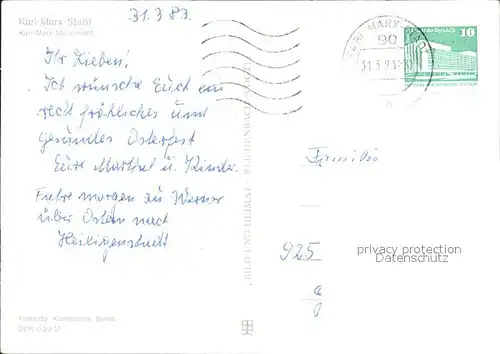 Karl-Marx-Stadt
Karl-Marx-Monument
31.3.83
Ihr Lieben!
Ich wünsche Euch ein
recht fröhliches und
gesundes Osterfest
Eure Marthel u. Kinder.
Fahre morgen zu Werner
über Ostern nach
Heiligenstadt
BILD UND HEIMAT
KARL-MARX-STADT
90
31.3.83
10
Familie
925
privacy protection
Datenschutz